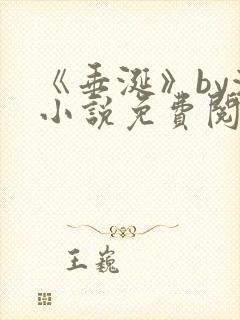 《垂涎》by
小说免费阅
王巍